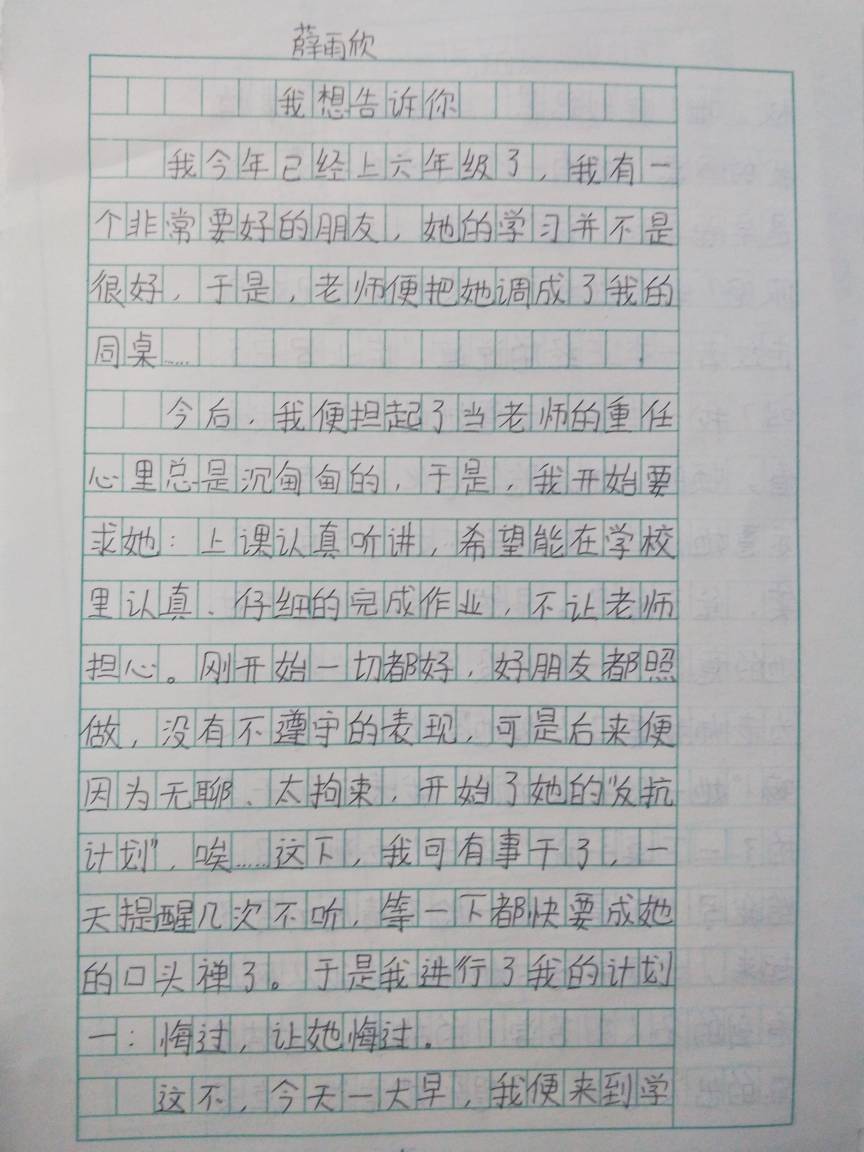 薛雨欣
我想告诉你
我今年已经上六年级了，我有一
个非常要好的朋友，她的学习并不是
很好，于是，老师便把她调成了我的
同桌……
今后，我便担起了当老师的重任
心里总是沉甸甸的，于是，我开始要
求她：上课认真听讲，希望能在学校
里认真、仔细的完成作业，不让老师
担心。刚开始一切都好，好朋友都照
做，没有不遵守的表现，可是后来便
因为无聊、太拘束，开始了她的“反抗
计划”，唉……这下，我可有事干了，一
天提醒几次不听，等一下都快要成她
的口头禅了。于是我进行了我的计划
一：悔过，让她悔过。
这不，今天一大早，我便来到学